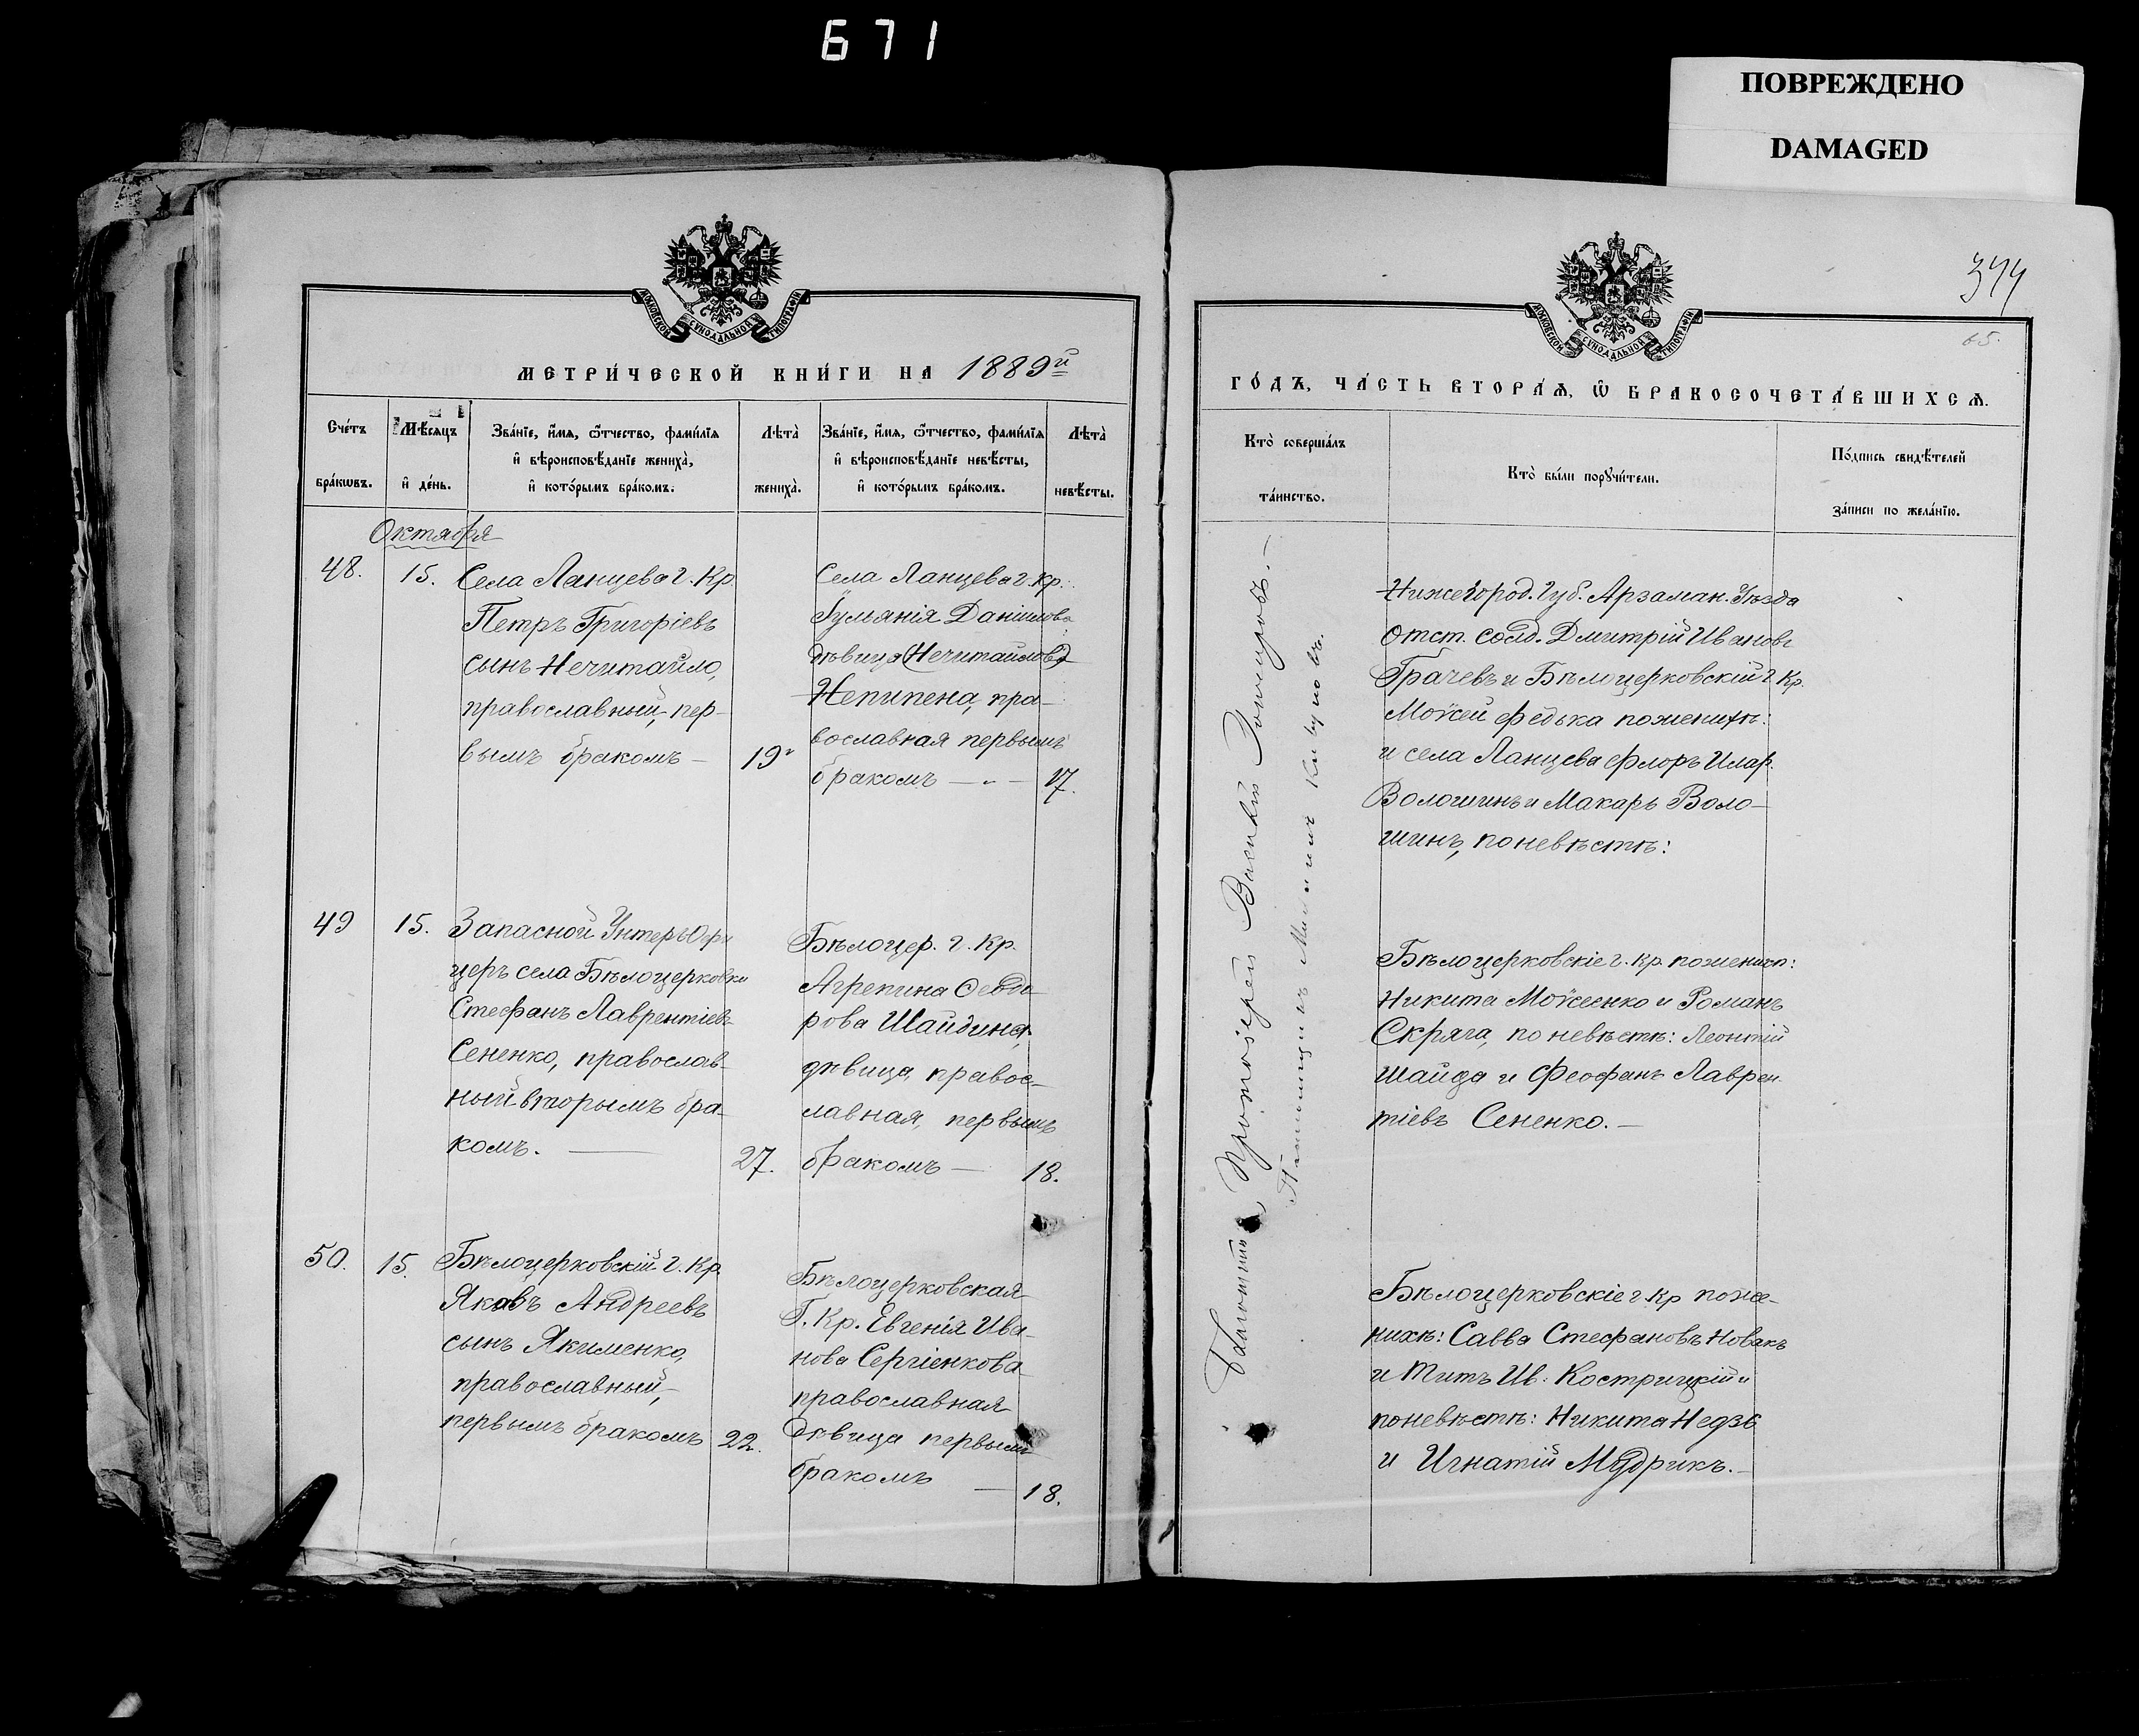 671
ПОВРЕЖДЕНО
DAMAGED
МОСКОВСКОЙ СѴНОДАЛЬНОЙ ТИПОГРАФІИ
МЕТРИ́ЧЕСКОЙ КНИ́ГИ НА 1889й
Сче́тъ бра́кѡвъ.
Мѣ́сяцъ и҆ де́нь.
Зва́нїе, и҆́мѧ, ѻ҆́тчество, фами́лїѧ
и҆ вѣроисповѣ́данїе жениха̀,
и҆ кото́рымъ бра́комъ.
Лѣта̀ жениха̀.
Зва́нїе, и҆́мѧ, ѻ҆́тчество, фами́лїѧ
и҆ вѣроисповѣ́данїе невѣ́сты,
и҆ кото́рымъ бра́комъ.
Лѣта̀ невѣ́сты.
Октября
48.
15.
Села Ланцева г. Кр.
Петръ Григоріевъ
сынъ Нечитайло,
православный, пер-
вымъ бракомъ —
19
Села Ланцева г. Кр.
Іульянія Данилова
дѣвица (Нечитайлова)
Непипена, пра-
вославная первымъ
бракомъ — " —
17.
49
15.
Запасной Унтеръ Офи
церъ села Бѣлоцерковки
Стефанъ Лаврентіевъ
Сененко, православ-
ный вторымъ бра-
комъ. —
27.
Бѣлоцер. г. Кр.
Агрепина
рова Шайдина,
дѣвица, правос-
лавная, первымъ
бракомъ —
18.
50.
15.
Бѣлоцерковскій г. Кр.
Яковъ Андреевъ
сынъ Якименко,
православный,
первымъ бракомъ
22.
Бѣлоцерковская
Г. Кр. Евгенія Ива-
нова Сергіенкова
православная
дѣвица первымъ
бракомъ —
18.
344
65.
МОСКОВСКОЙ СѴНОДАЛЬНОЙ ТИПОГРАФІИ
ГО́ДЪ, ЧА́СТЬ ВТОРА́Ѧ, Ѽ БРАКОСОЧЕТА́ВШИХСѦ.
Кто̀ соверша́лъ
та́инство.
Кто̀ бы́ли порꙋчи́тели.
По́дпись свидѣ́телей
за́писи по жела́нїю.
Протоіерей Василій —
Нижегород. Губ. Арзаман. Уѣзда
отст. солд. Дмитрій Ивановъ
Грачевъ и Бѣлоцерковскій г. Кр.
Моѵсей Федька поженихѣ:
и села Ланцева Флоръ Илар.
Волошинъ и Макаръ Воло-
шинъ, поневѣстѣ:
Бѣлоцерковскіе г. Кр. поженихѣ:
Никита Моѵсеенко и Романъ
Скряга, поневѣстѣ: Леонтій
Шайда и Феофанъ Лаврен-
тіевъ Сененко. —
Бѣлоцерковскіе г. Кр поже-
нихѣ: Савва Стефановъ Новакъ
и Титъ Ив. Кострицкій и
поневѣстѣ: Никита
и Игнатій Мудрикъ. —